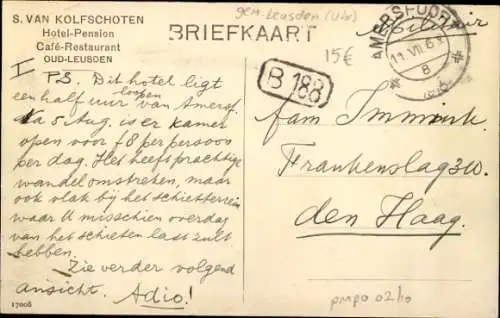 S. VAN KOLFSCHOTEN
Hotel-Pension
Café-Restaurant
OUD-LEUSDEN
gem. Leusden (Utr)
BRIEFKAART
15€
AMERSFOORT
11.VII.
8
Militair
B 188
I
P.S. Dit hotel ligt
een half uur loopen van Amersf.
Na 5 Aug. is er kamer
open voor f8 per persoon
per dag. Het heeft prachtige
wandelomstreken, maar
ook vlak bij het schietterrein
waar U misschien overdag
van het schieten last zult
hebben.
Zie verder volgend
ansicht. Adio!
17008
fam Immink.
Frankenslag 310.
den Haag.
pmpo 02/10